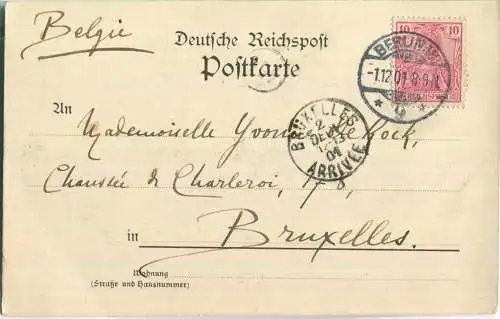 Belgie
Deutsche Reichspost
Postkarte
10 10
BERLIN W.
-1.12.01.8-9N.
* 9
BRUXELLES
2
DEC
12-13
01
ARRIVÉE
An
Mademoiselle
Chaussée de Charleroi, 178,
in Bruxelles.
Wohnung
(Straße und Hausnummer)